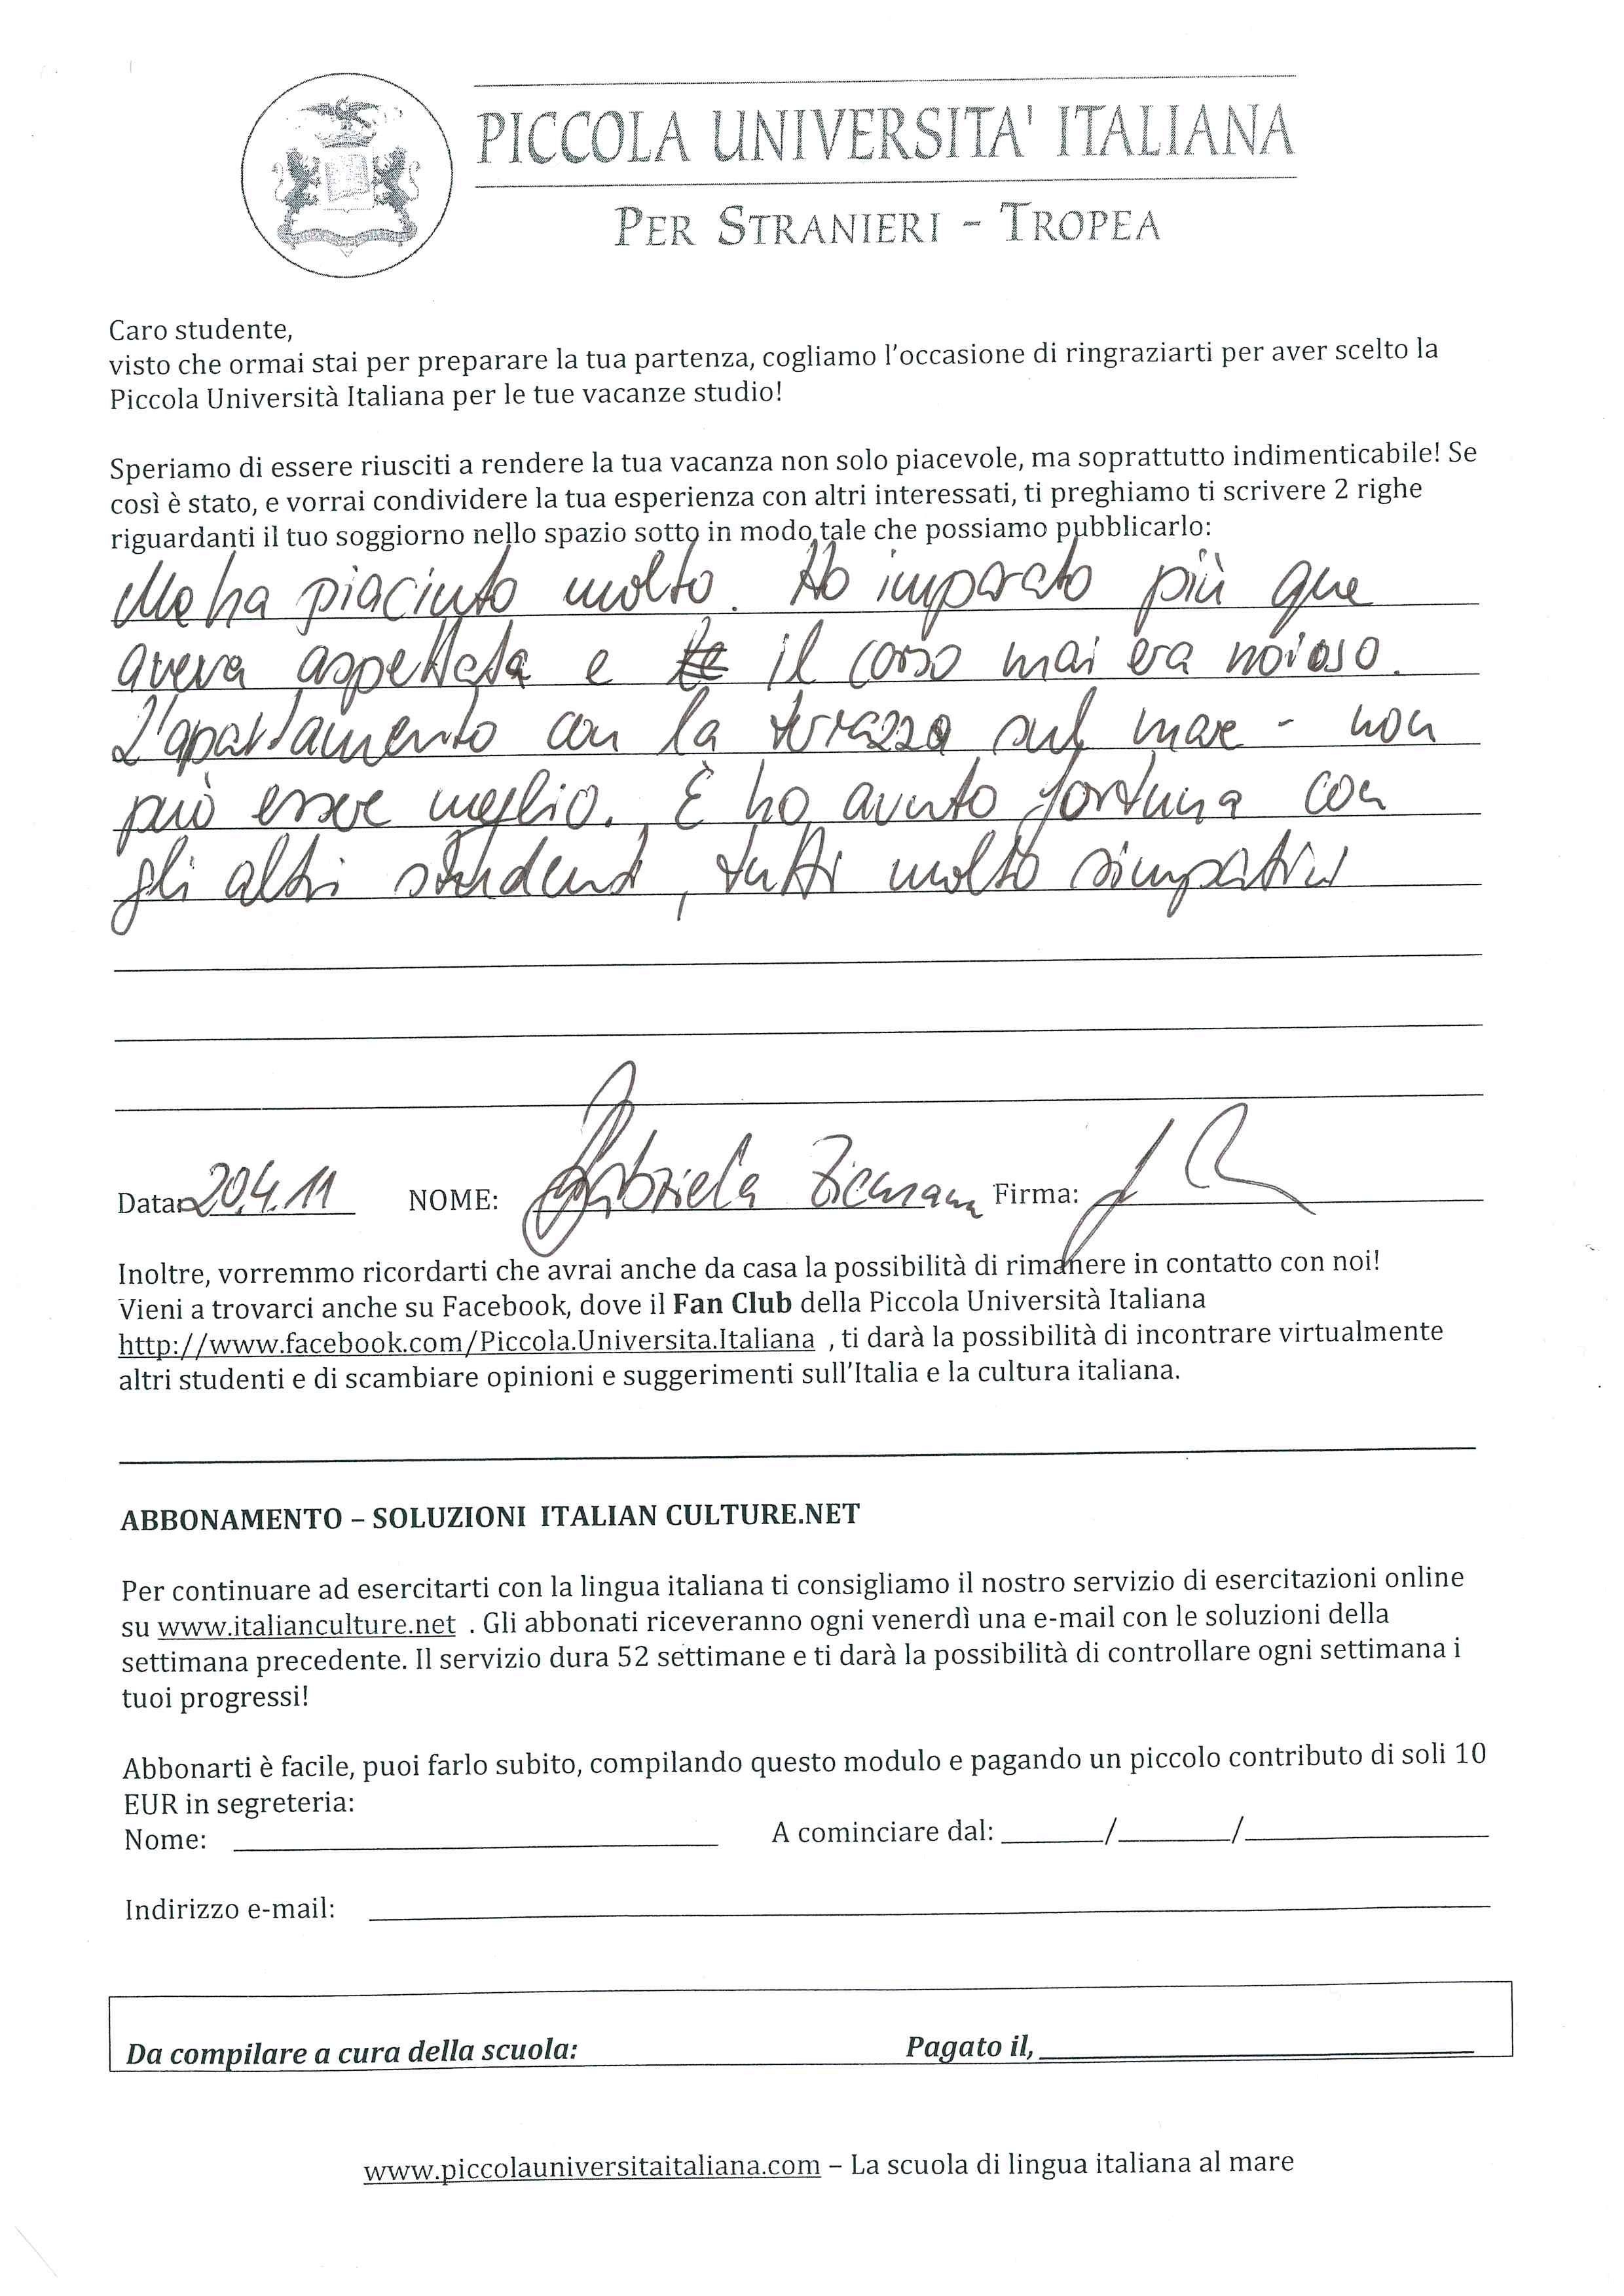 PICCOLA UNIVERSITA' ITALIANA
PER STRANIERI - TROPEA
Caro studente,
visto che ormai stai per preparare la tua partenza, cogliamo l'occasione di ringraziarti per aver scelto la
Piccola Università Italiana per le tue vacanze studio!
Speriamo di essere riusciti a rendere la tua vacanza non solo piacevole, ma soprattutto indimenticabile! Se
così è stato, e vorrai condividere la tua esperienza con altri interessati, ti preghiamo ti scrivere 2 righe
riguardanti il tuo soggiorno nello spazio sotto in modo tale che possiamo pubblicarlo:
Me ha piaciuto molto. Ho imparato più que
aveva aspettata e il corso mai era noioso.
L'apartamento con la terazza sul mare - non
può essere meglio. È ho avuto fortuna con
gli altri studenti, tutti molto simpatici
Data: 20.4.11 NOME: Gabriela Firma:
Inoltre, vorremmo ricordarti che avrai anche da casa la possibilità di rimanere in contatto con noi!
Vieni a trovarci anche su Facebook, dove il Fan Club della Piccola Università Italiana
http://www.facebook.com/Piccola.Universita.Italiana , ti darà la possibilità di incontrare virtualmente
altri studenti e di scambiare opinioni e suggerimenti sull'Italia e la cultura italiana.
ABBONAMENTO – SOLUZIONI ITALIAN CULTURE.NET
Per continuare ad esercitarti con la lingua italiana ti consigliamo il nostro servizio di esercitazioni online
su www.italianculture.net . Gli abbonati riceveranno ogni venerdì una e-mail con le soluzioni della
settimana precedente. Il servizio dura 52 settimane e ti darà la possibilità di controllare ogni settimana i
tuoi progressi!
Abbonarti è facile, puoi farlo subito, compilando questo modulo e pagando un piccolo contributo di soli 10
EUR in segreteria:
Nome: A cominciare dal: / /
Indirizzo e-mail:
Da compilare a cura della scuola: Pagato il,
www.piccolauniversitaitaliana.com – La scuola di lingua italiana al mare